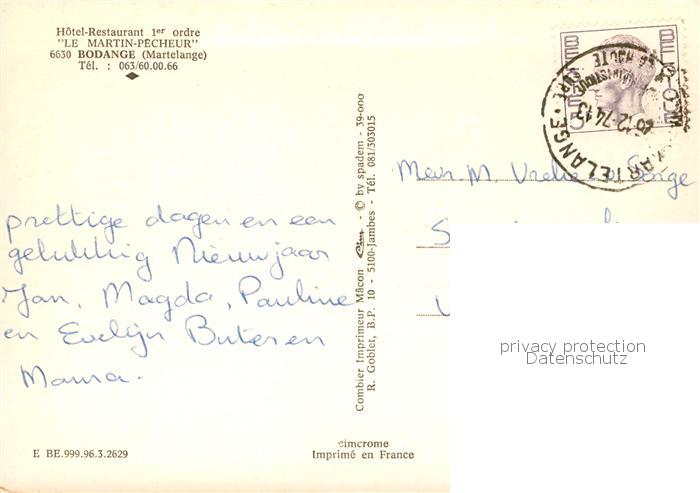 Hôtel-Restaurant 1er ordre
"LE MARTIN-PÊCHEUR"
6630 BODANGE (Martelange)
Tél. : 063/60.00.66
prettige dagen en een
gelukkig Nieuwjaar
Jan, Magda, Pauline
en Evelijn Buteren
Mama.
E BE.999.96.3.2629
Combier Imprimeur Mâcon Cim - © by spadem - 39-000
R. Goblet, B.P. 10 - 5100-Jambes - Tél. 081/303015
cimcrome
Imprimé en France
BELGIE
MARTELANGE
HAUTE
SURE
-12-74 13
M.
privacy protection
Datenschutz